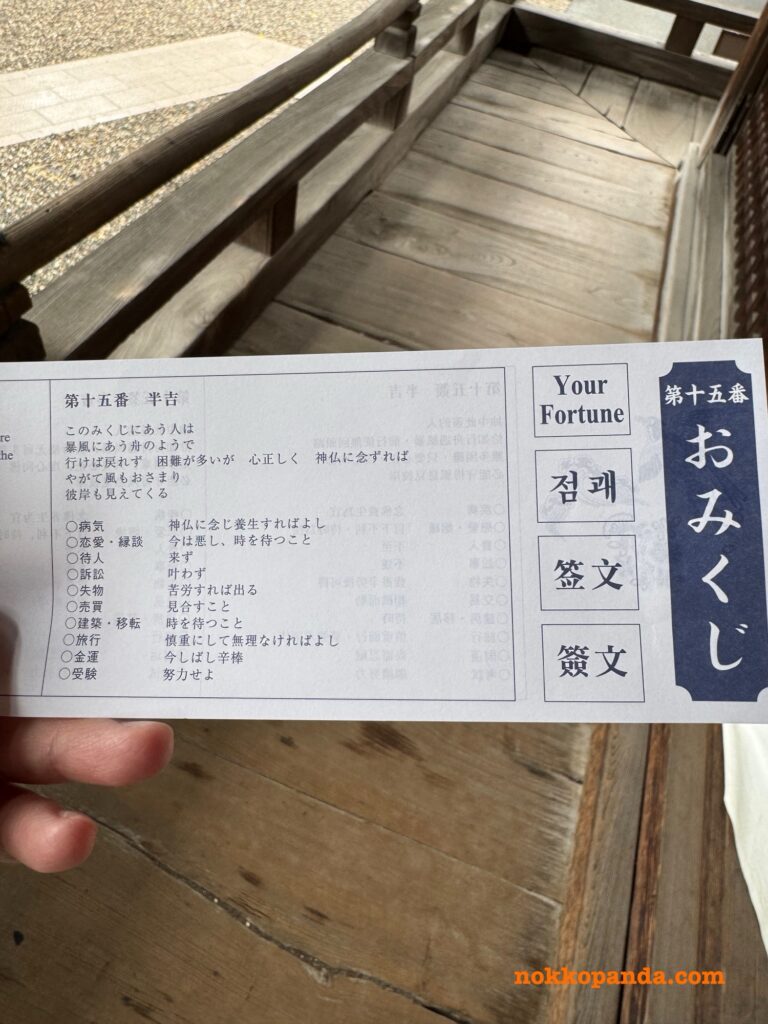 第十五番　半吉
このみくじにあう人は
暴風にあう舟のようで
行けば戻れず　困難が多いが　心正しく　神仏に念ずれば
やがて風もおさまり
彼岸も見えてくる
○病気　神仏に念じ養生すればよし
○恋愛・縁談　今は悪し、時を待つこと
○待人　来ず
○訴訟　叶わず
○失物　苦労すれば出る
○売買　見合すこと
○建築・移転　時を待つこと
○旅行　慎重にして無理なければよし
○金運　今しばし辛棒
○受験　努力せよ
Your
Fortune
점괘
签文
簽文
第十五番
おみくじ
re
the
nokkopanda.com